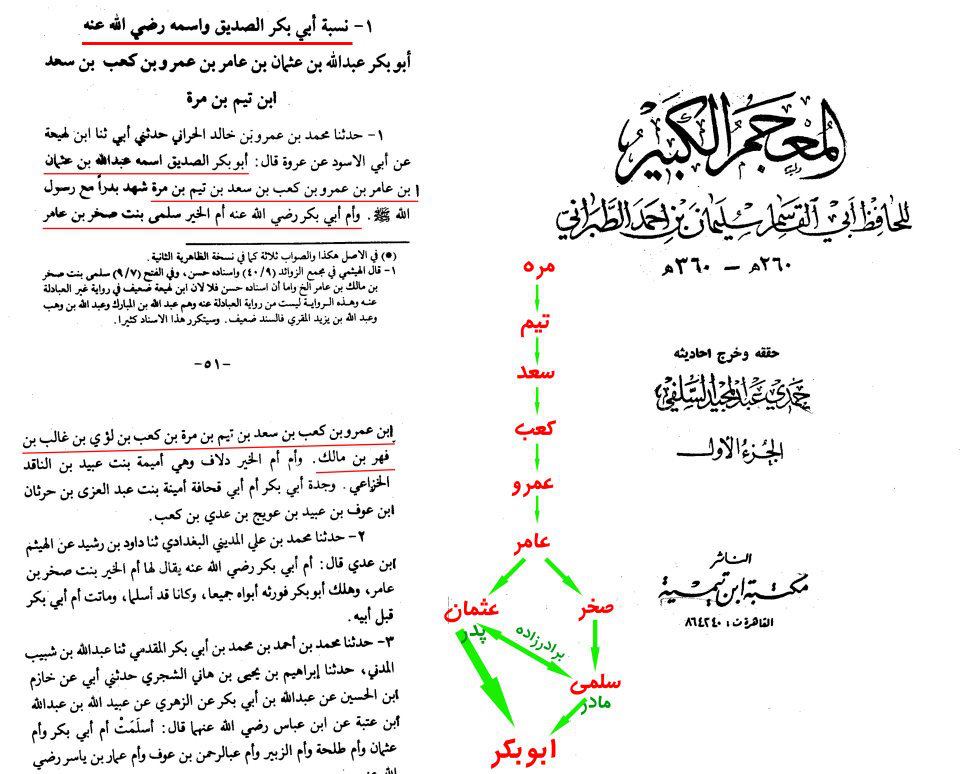 ١- نسبة أبي بكر الصديق واسمه رضي الله عنه
أبو بكر عبدالله بن عثمان بن عامر بن عمرو بن كعب بن سعد
ابن تيم بن مرة
١- حدثنا محمد بن عمرو بن خالد الحراني حدثني أبي ثنا ابن لهيعة
عن أبي الاسود عن عروة قال: أبو بكر الصديق اسمه عبدالله بن عثمان
ابن عامر بن عمرو بن كعب بن سعد بن تيم بن مرة شهد بدراً مع رسول
الله ﷺ. وأم أبي بكر رضي الله عنه أم الخير سلمى بنت صخر بن عامر
(●) في الاصل هكذا والصواب ثلاثة كما في نسخة الظاهرية الثانية.
١- قال الهيثمي في مجمع الزوائد (٤٠/٩) واسناده حسن، وفي الفتح (٩/٧) سلمى بنت صخر
بن مالك بن عامر الخ واما أن اسناده حسن فلا لان ابن لهيعة ضعيف في رواية غير العبادلة
عنه وهذه الرواية ليست من رواية العبادلة عنه وهم عبد الله بن المبارك وعبد الله بن وهب
وعبد الله بن يزيد المقري فالسند ضعيف. وسيتكرر هذا الاسناد كثيرا.
-٥١-
ابن عمرو بن كعب بن سعد بن تيم بن مرة بن كعب بن لؤي بن غالب بن
فهر بن مالك. وأم أم الخير دلاف وهي أميمة بنت عبيد بن الناقد
الخزاعي. وجدة أبي بكر أم أبي قحافة أمينة بنت عبد العزى بن حرثان
ابن عوف بن عبيد بن عويج بن عدي بن كعب.
٢- حدثنا محمد بن علي المديني البغدادي ثنا داود بن رشيد عن الهيثم
ابن عدي قال: أم أبي بكر رضي الله عنه يقال لها أم الخير بنت صخر بن
عامر، وهلك أبو بكر فورثه أبواه جميعا، وكانا قد أسلما، وماتت أم أبي بكر
قبل أبيه.
٣- حدثنا محمد بن أحمد بن محمد بن أبي بكر المقدمي ثنا عبدالله بن شبيب
المدني، حدثنا إبراهيم بن يحيى بن هاني الشجري حدثني أبي عن خازم
ابن الحسين عن عبدالله بن أبي بكر عن الزهري عن عبيد الله بن عبدالله
ابن عتبة عن ابن عباس رضي الله عنهما قال: أسلمَتْ أم أبي بكر وأم
عثمان وأم طلحة وأم الزبير وأم عبدالرحمن بن عوف وأم عمار بن ياسر رضي
المعجم الكبير
للحافظ أبي القاسم سليمان بن احمد الطبراني
٢٦٠هـ - ٣٦٠هـ
حققه وخرج احاديثه
حمدي عبد المجيد السلفي
الجزء الأول
الناشر
مكتبة ابن تيمية
القاهرة ت: ٨٦٤٢٤٠
مره
تیم
سعد
کعب
عمرو
عامر
صخر
عثمان
پدر
برادرزاده
سلمی
مادر
ابوبکر